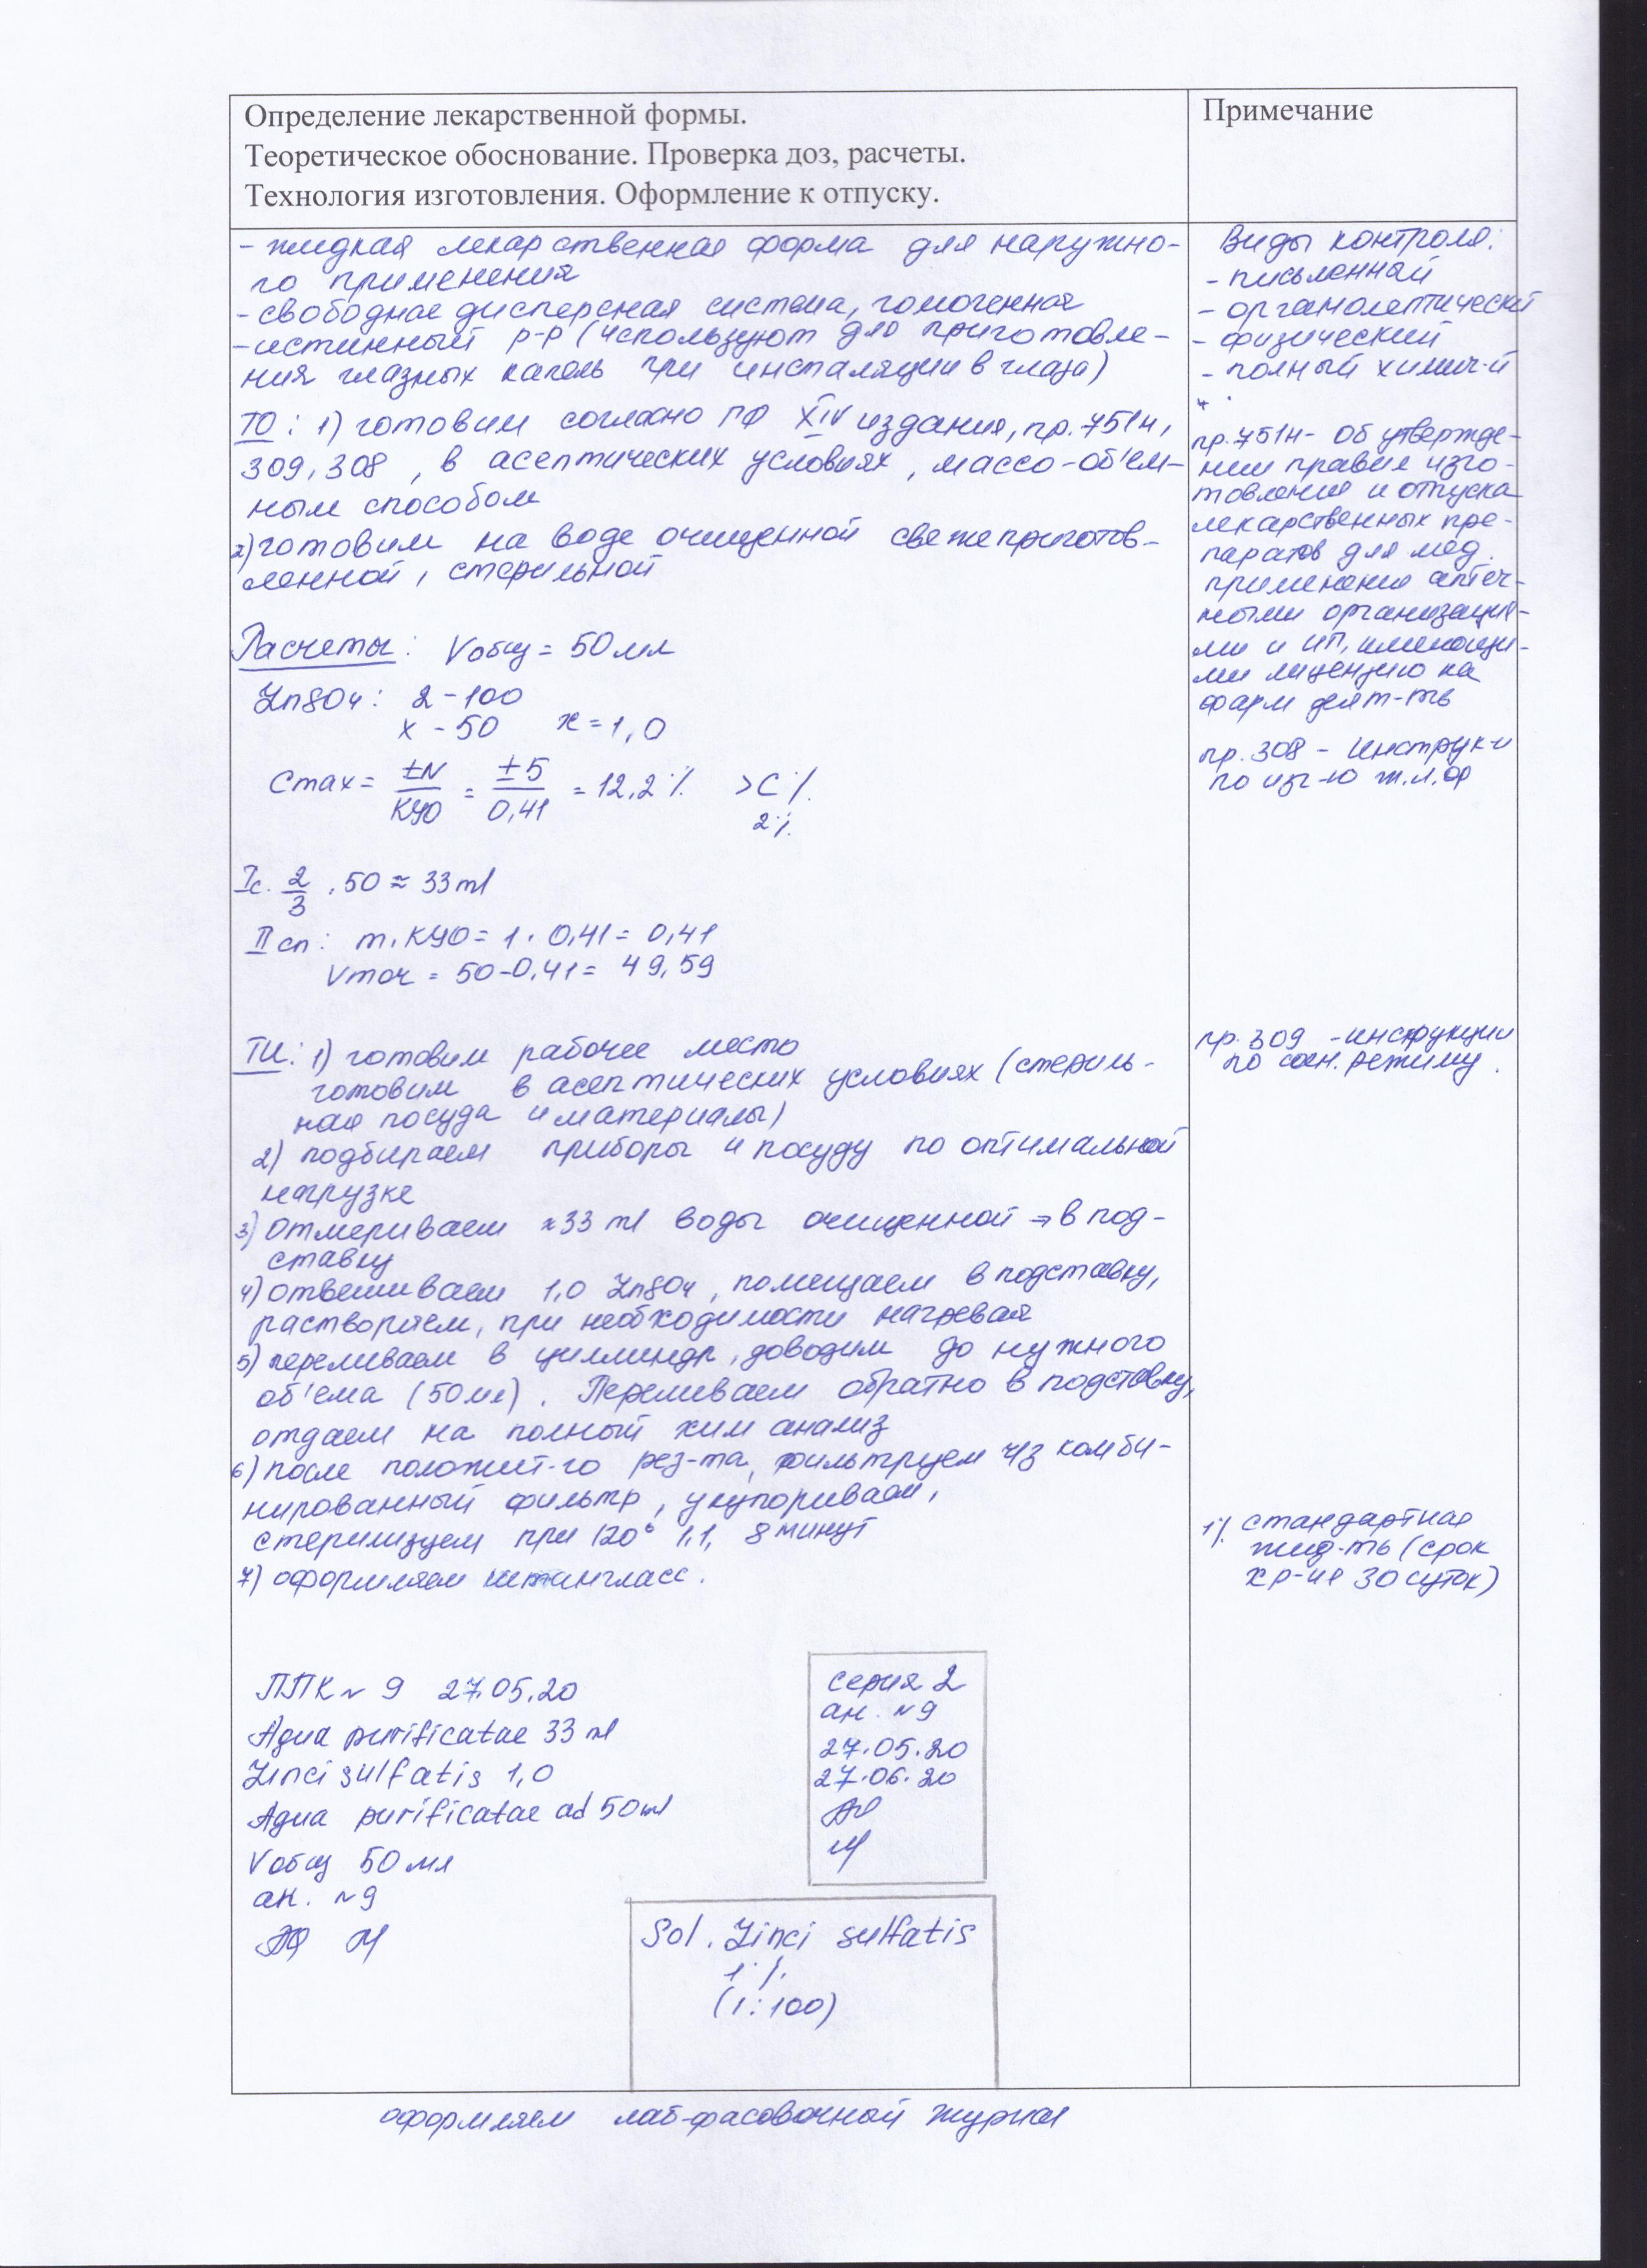 Определение лекарственной формы.
Теоретическое обоснование. Проверка доз, расчеты.
Технология изготовления. Оформление к отпуску.
- жидкая лекарственная форма для наружно-
го применения
- свободное дисперсная система, гомогенная
- истинный р-р (используют для приготовле-
ния глазных капель при инсталяции в глаза)
ТО: 1) готовим согласно ГФ XIV издания, пр. 751н,
309, 308, в асептических условиях, массо-об'ем-
ным способом
2) готовим на воде очищенной свежеприготов-
ленной, стерильной
Расчеты: Vобщ = 50 мл
ZnSO4: 2 - 100
x - 50 x = 1,0
Cmax = ±N/КУО = ±5/0,41 = 12,2% > C%
2%
Iс. 2/3 · 50 ≈ 33 ml
II сп: m · КУО = 1 · 0,41 = 0,41
Vточ = 50 - 0,41 = 49,59
ТИ: 1) готовим рабочее место
готовим в асептических условиях (стериль-
ная посуда и материалы)
2) подбираем приборы и посуду по оптимальной
нагрузке
3) отмериваем ≈33 ml воды очищенной ⇒ в под-
ставку
4) отвешиваем 1,0 ZnSO4, помещаем в подставку,
растворяем, при необходимости нагревая
5) переливаем в циллиндр, доводим до нужного
об'ема (50 мл). Переливаем обратно в подставку,
отдаем на полный хим анализ
6) после положит-го рез-та, фильтруем ч/з комби-
нированный фильтр, укупориваем,
стерилизуем при 120° 1,1, 8 минут
7) оформляем штангласс.
ППК № 9 27.05.20
Aqua purificatae 33 ml
Zinci sulfatis 1,0
Aqua purificatae ad 50 ml
Vобщ 50 мл
ан. № 9
серия 2
ан. № 9
27.05.20
27.06.20
Sol. Zinci sulfatis
1%
(1:100)
оформляем лаб-фасовочный журнал
Примечание
Виды контроля:
- письменный
- органолептический
- физический
- полный химич-й
пр. 751н - Об утвержде-
нии правил изго-
товления и отпуска
лекарственных пре-
паратов для мед.
применения аптеч-
ными организация-
ми и ИП, имеющи-
ми лицензию на
фарм деят-ть
пр. 308 - Инструк-и
по изг-ю ж.л.ф
пр. 309 - инструкции
по сан. режиму.
1% стандартная
жид-ть (срок
хр-ия 30 суток)